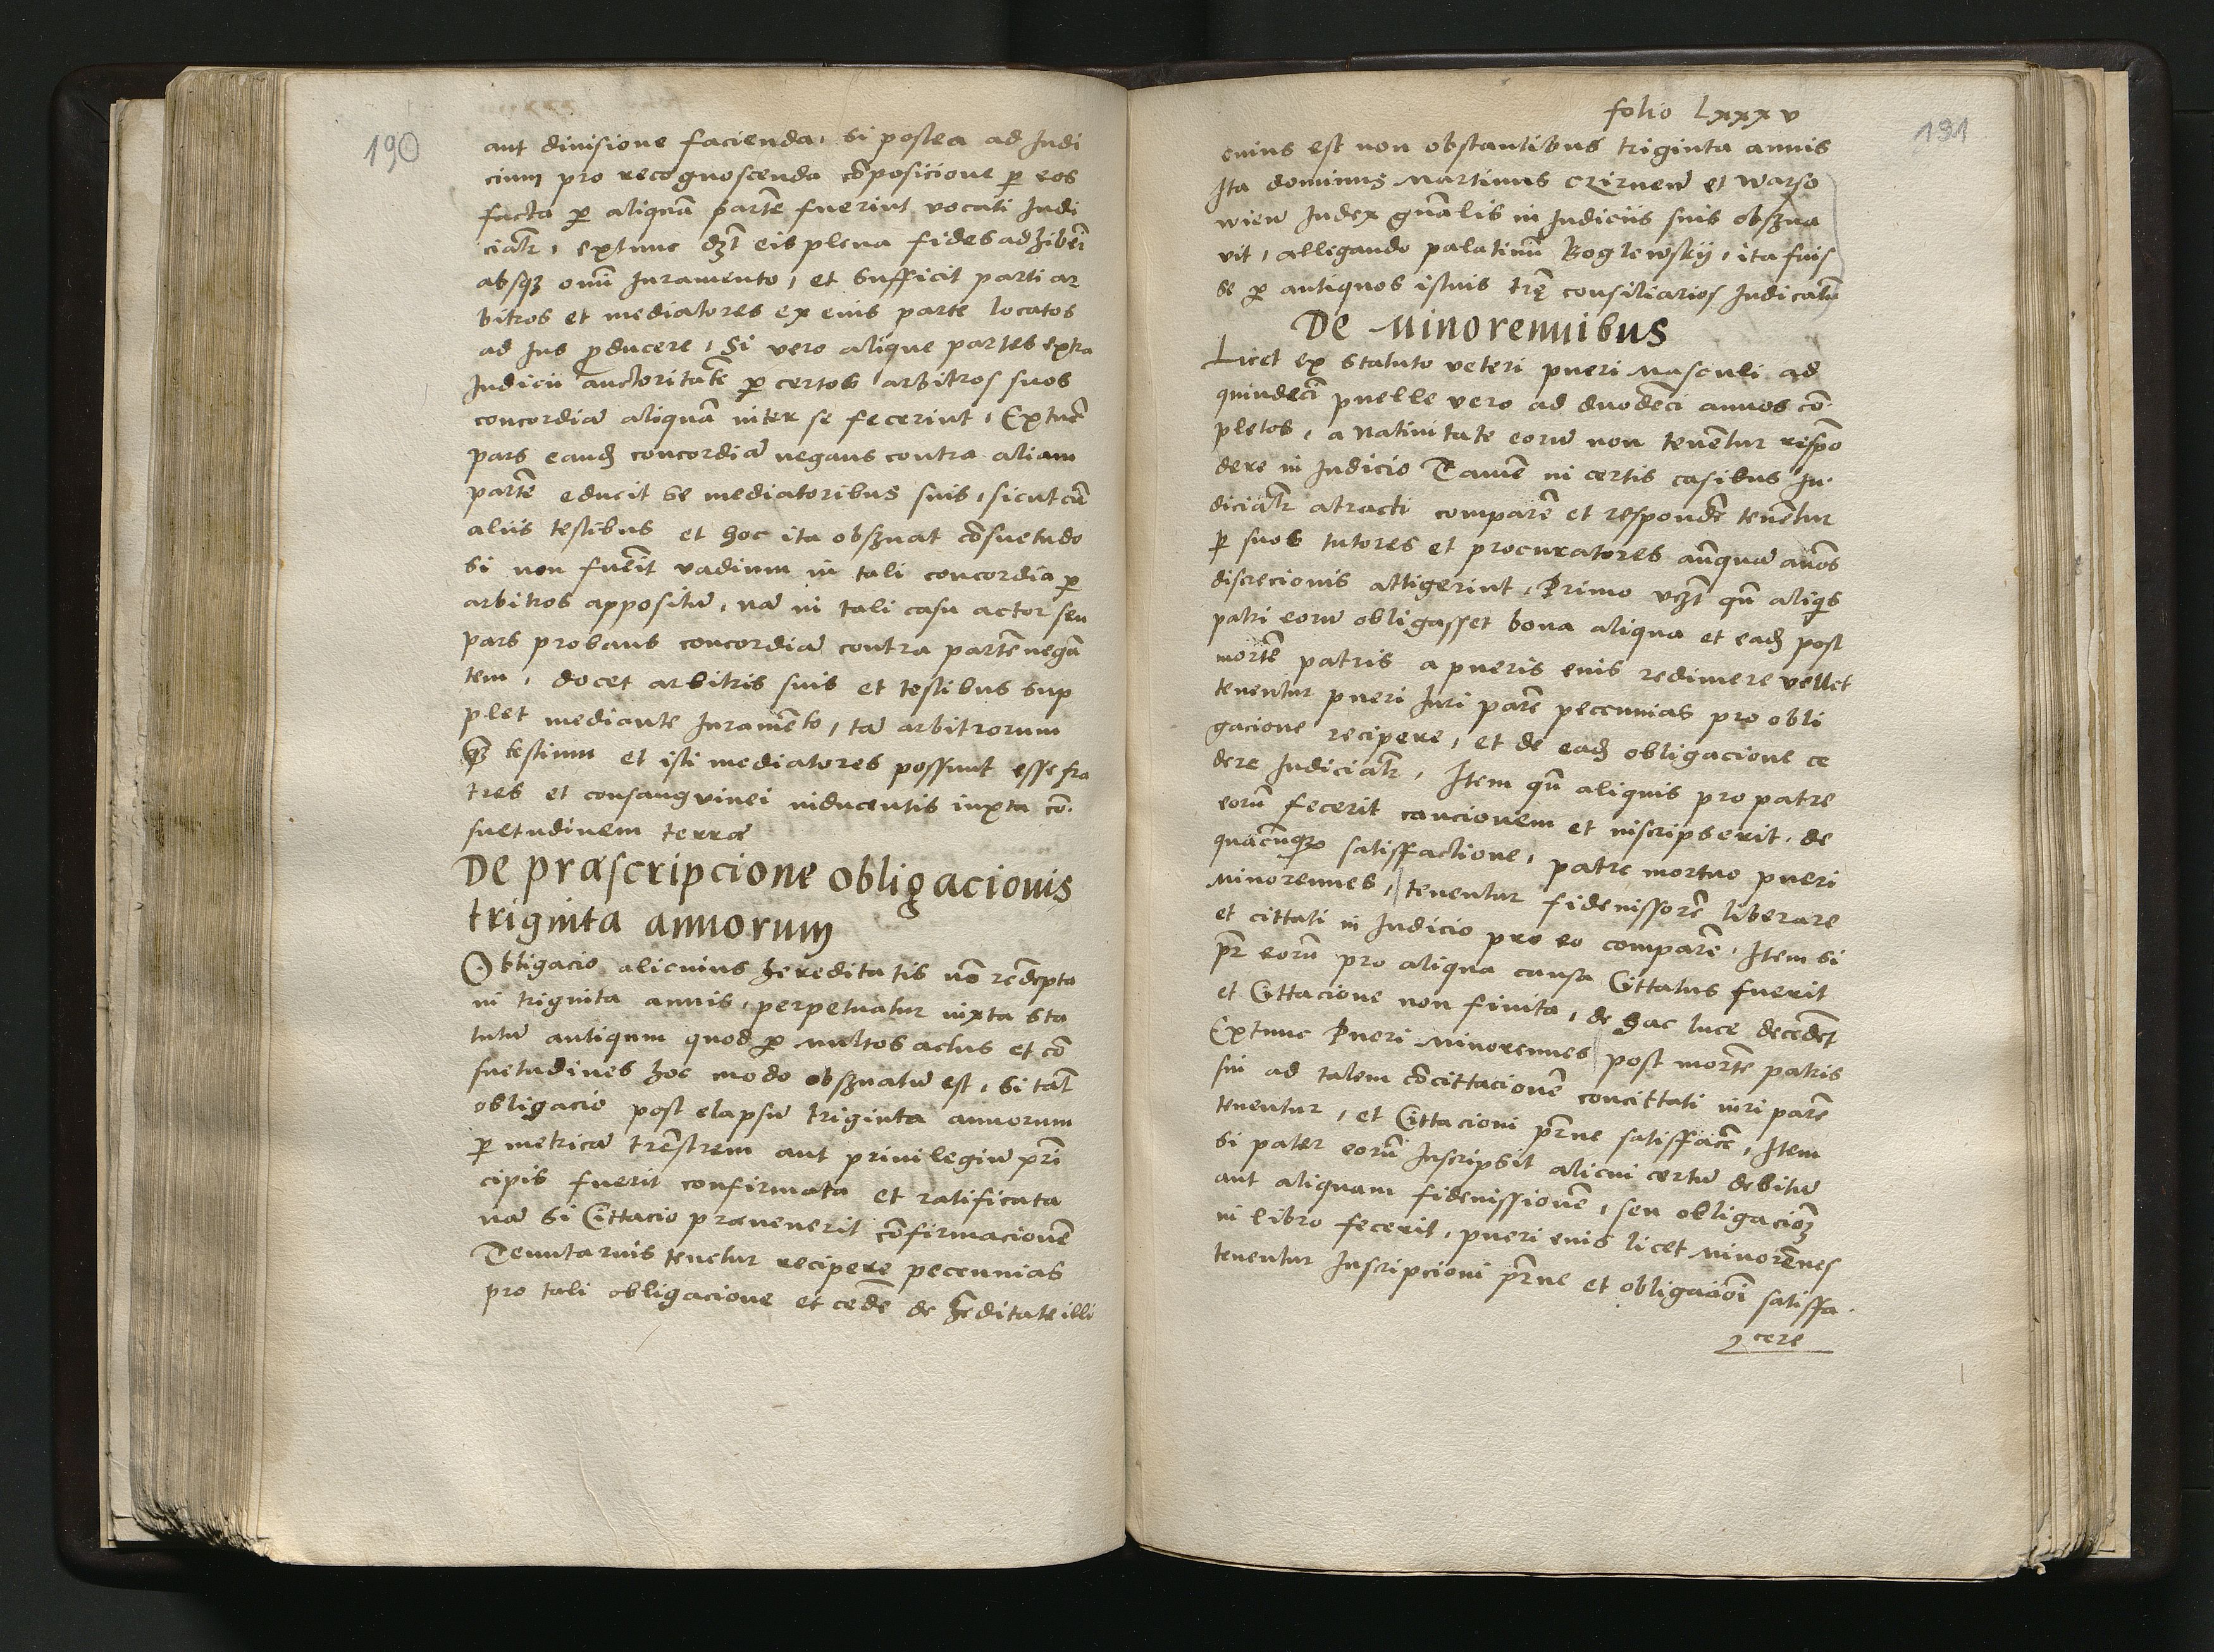 190
aut diuisione facienda, si postea ad Judi
cium pro recognoscenda cōposicione p eos
facta p aliquā partē fuerint vocati Judi
cialr, extunc dꝫt eis plena fides adhiberi
absqꝫ omī Juramento, et sufficit parti ar
bitros et mediatores ex eius parte locatos
ad Jus producere, Si vero alique partes extra
Judicii auctoritatē p certos arbitros suos
concordiā aliquā inter se fecerint, Extunc
pars eandꝫ concordiā negans contra aliam
partē educit se mediatoribus suis, sicut cū
aliis testibus et hoc ita obsꝫuat cōsuetudo
Si non fuerit vadium in tali concordia p
arbitros appositū, nā in tali casu actor seu
pars probans concordiā contra partē negā
tem, docet arbitris suis et testibus sup
plet mediante Juramēto, tā arbitrorum
qꝫ testium et isti mediatores possunt esse fra
tres et consanguinei inducentis iuxta cō
suetudinem terræ
De præscripcione obligacionis
triginta annorum
Obligacio alicuius hereditatis nō redēpta
in triginta annis, perpetuatur iuxta sta
tutū antiqum quod p multos actus et cō
suetudines hoc modo obsꝫuatū est, Si talr
obligacio post elapsū triginta annorum
p metricā trēstrem aut priuilegiū pri
cipis fuerit confirmata et ratificata
nā Si Cittacio præuenerit cōfirmacionē
Tenutarius tenetur recipere peccunias
pro tali obligacione et cedē de hēditate illi
folio Lxxxv
191
cuius est non obstantibus triginta annis
Ita dominus Martinus Czirnew et Warso
wien Judex gnālis in Judiciis suis obsꝫua
vit, allegando palatinū Boglewsky, ita fuis
se p antiquos istius trę consiliarios Judicatū
De Minorennibus
Licet ex statuto veteri pueri masculi ad
quindeci puelle vero ad duodeci annos cō
pletos, a natiuitate eorū non tenentur respō
dere in Judicio Tamē in certis casibus Ju
dicialr atracti comparē et respondē tenētur
p suos tutores et procuratores anqua anos
discrecionis attigerint, Primo vꝫt qū aliqis
patri eorū obligasset bona aliqua et eadꝫ post
mortē patris a pueris eius redimere vellet
tenentur pueri Juri parē peccunias pro obli
gacione recipere, et de eadꝫ obligacione ce
dere Judicialr, Item qū aliquis pro patre
eorū fecerit caucionem et inscripserit, de
quacūqꝫ satisfactione, patre mortuo pueri
minorennes, tenentur fideiussorē liberare
et cittati in Judicio pro eo comparē, Item si
pr eorū pro aliqua causa Cittatus fuerit
et Cittacione non finita, de hac luce decedet
Extunc Pueri Minorennes post mortē patris
sui ad talem cōcittacionē concittati iuri parē
tenentur, et Cittacioni prne satisfacē, Item
Si pater eorū Inscripsit alicui certū debitū
aut aliquam fideiussionē, seu obligacioꝫ
in libro fecerit, pueri eius licet Minorēnes
tenentur Inscripcioni prne et obligacioi satisfa
cere